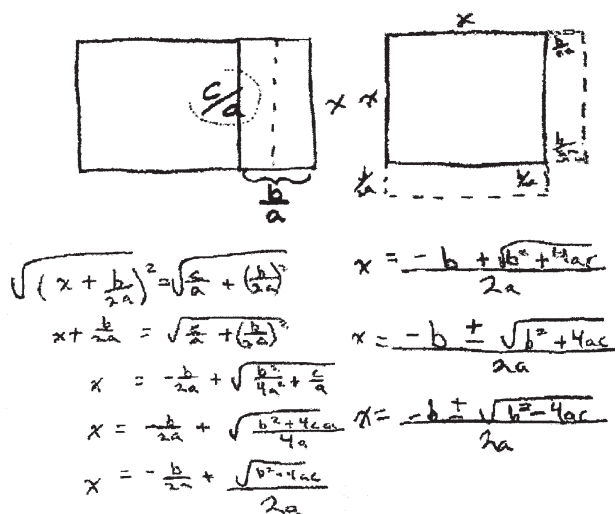 x
c/a
x
x
b/2a
b/2a
b/a
b/2a
b/2a
√(x + b/2a)² = √c/a + (b/2a)²
x + b/2a = √c/a + (b/2a)²
x = -b/2a + √b²/4a² + c/a
x = -b/2a + √b² + 4ca/4a
x = -b/2a + √b² + 4ac/2a
x = -b + √b² + 4ac/2a
x = -b ± √b² + 4ac/2a
x = -b ± √b² - 4ac/2a